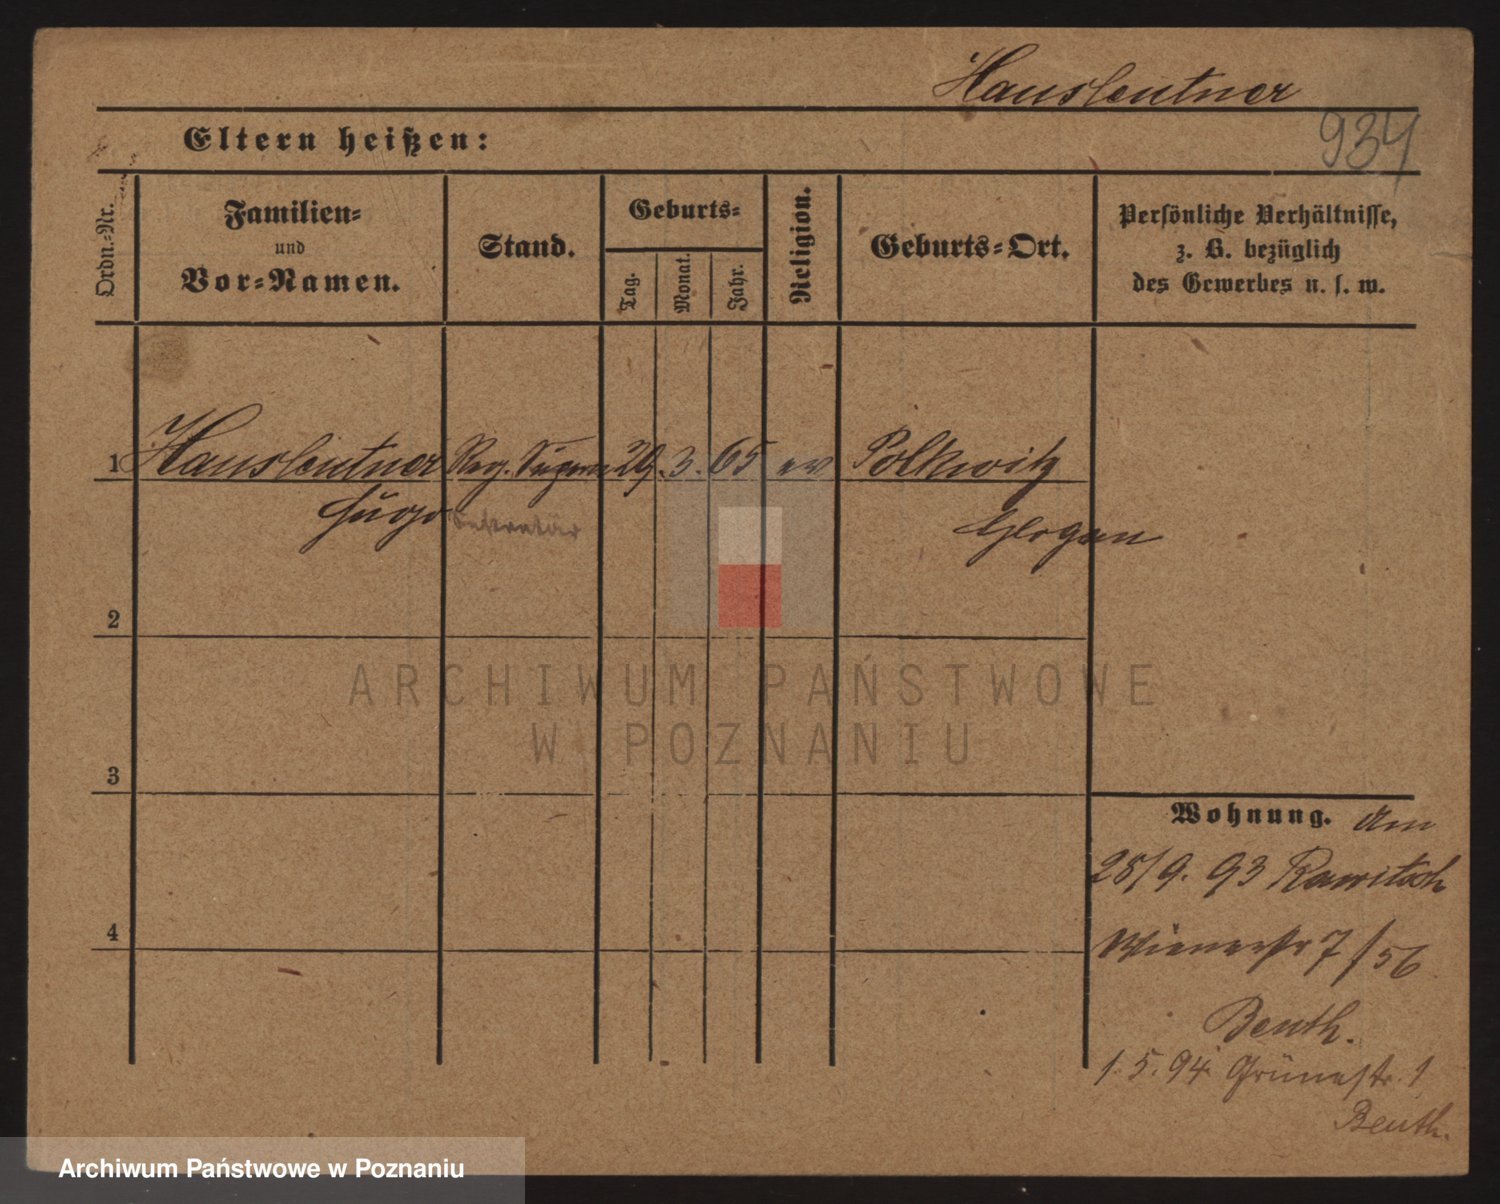 Hausleutner
934
Eltern heißen:
Ordn.-Nr.
Familien-
und
Vor-Namen.
Stand.
Geburts-
Tag.
Monat.
Jahr.
Religion.
Geburts-Ort.
Persönliche Verhältnisse,
z. B. bezüglich
des Gewerbes u. s. w.
1 Hausleutner Reg. 29. 3. 65 ev Polkwitz
Hugo Sekretär Glogau
2
ARCHIWUM PAŃSTWOWE
W POZNANIU
3
Wohnung. Am
28/9. 93 Rawitsch
4
Wienerstr 7/56
Beuth.
1. 5. 94 Grünestr. 1
Beuth.
Archiwum Państwowe w Poznaniu